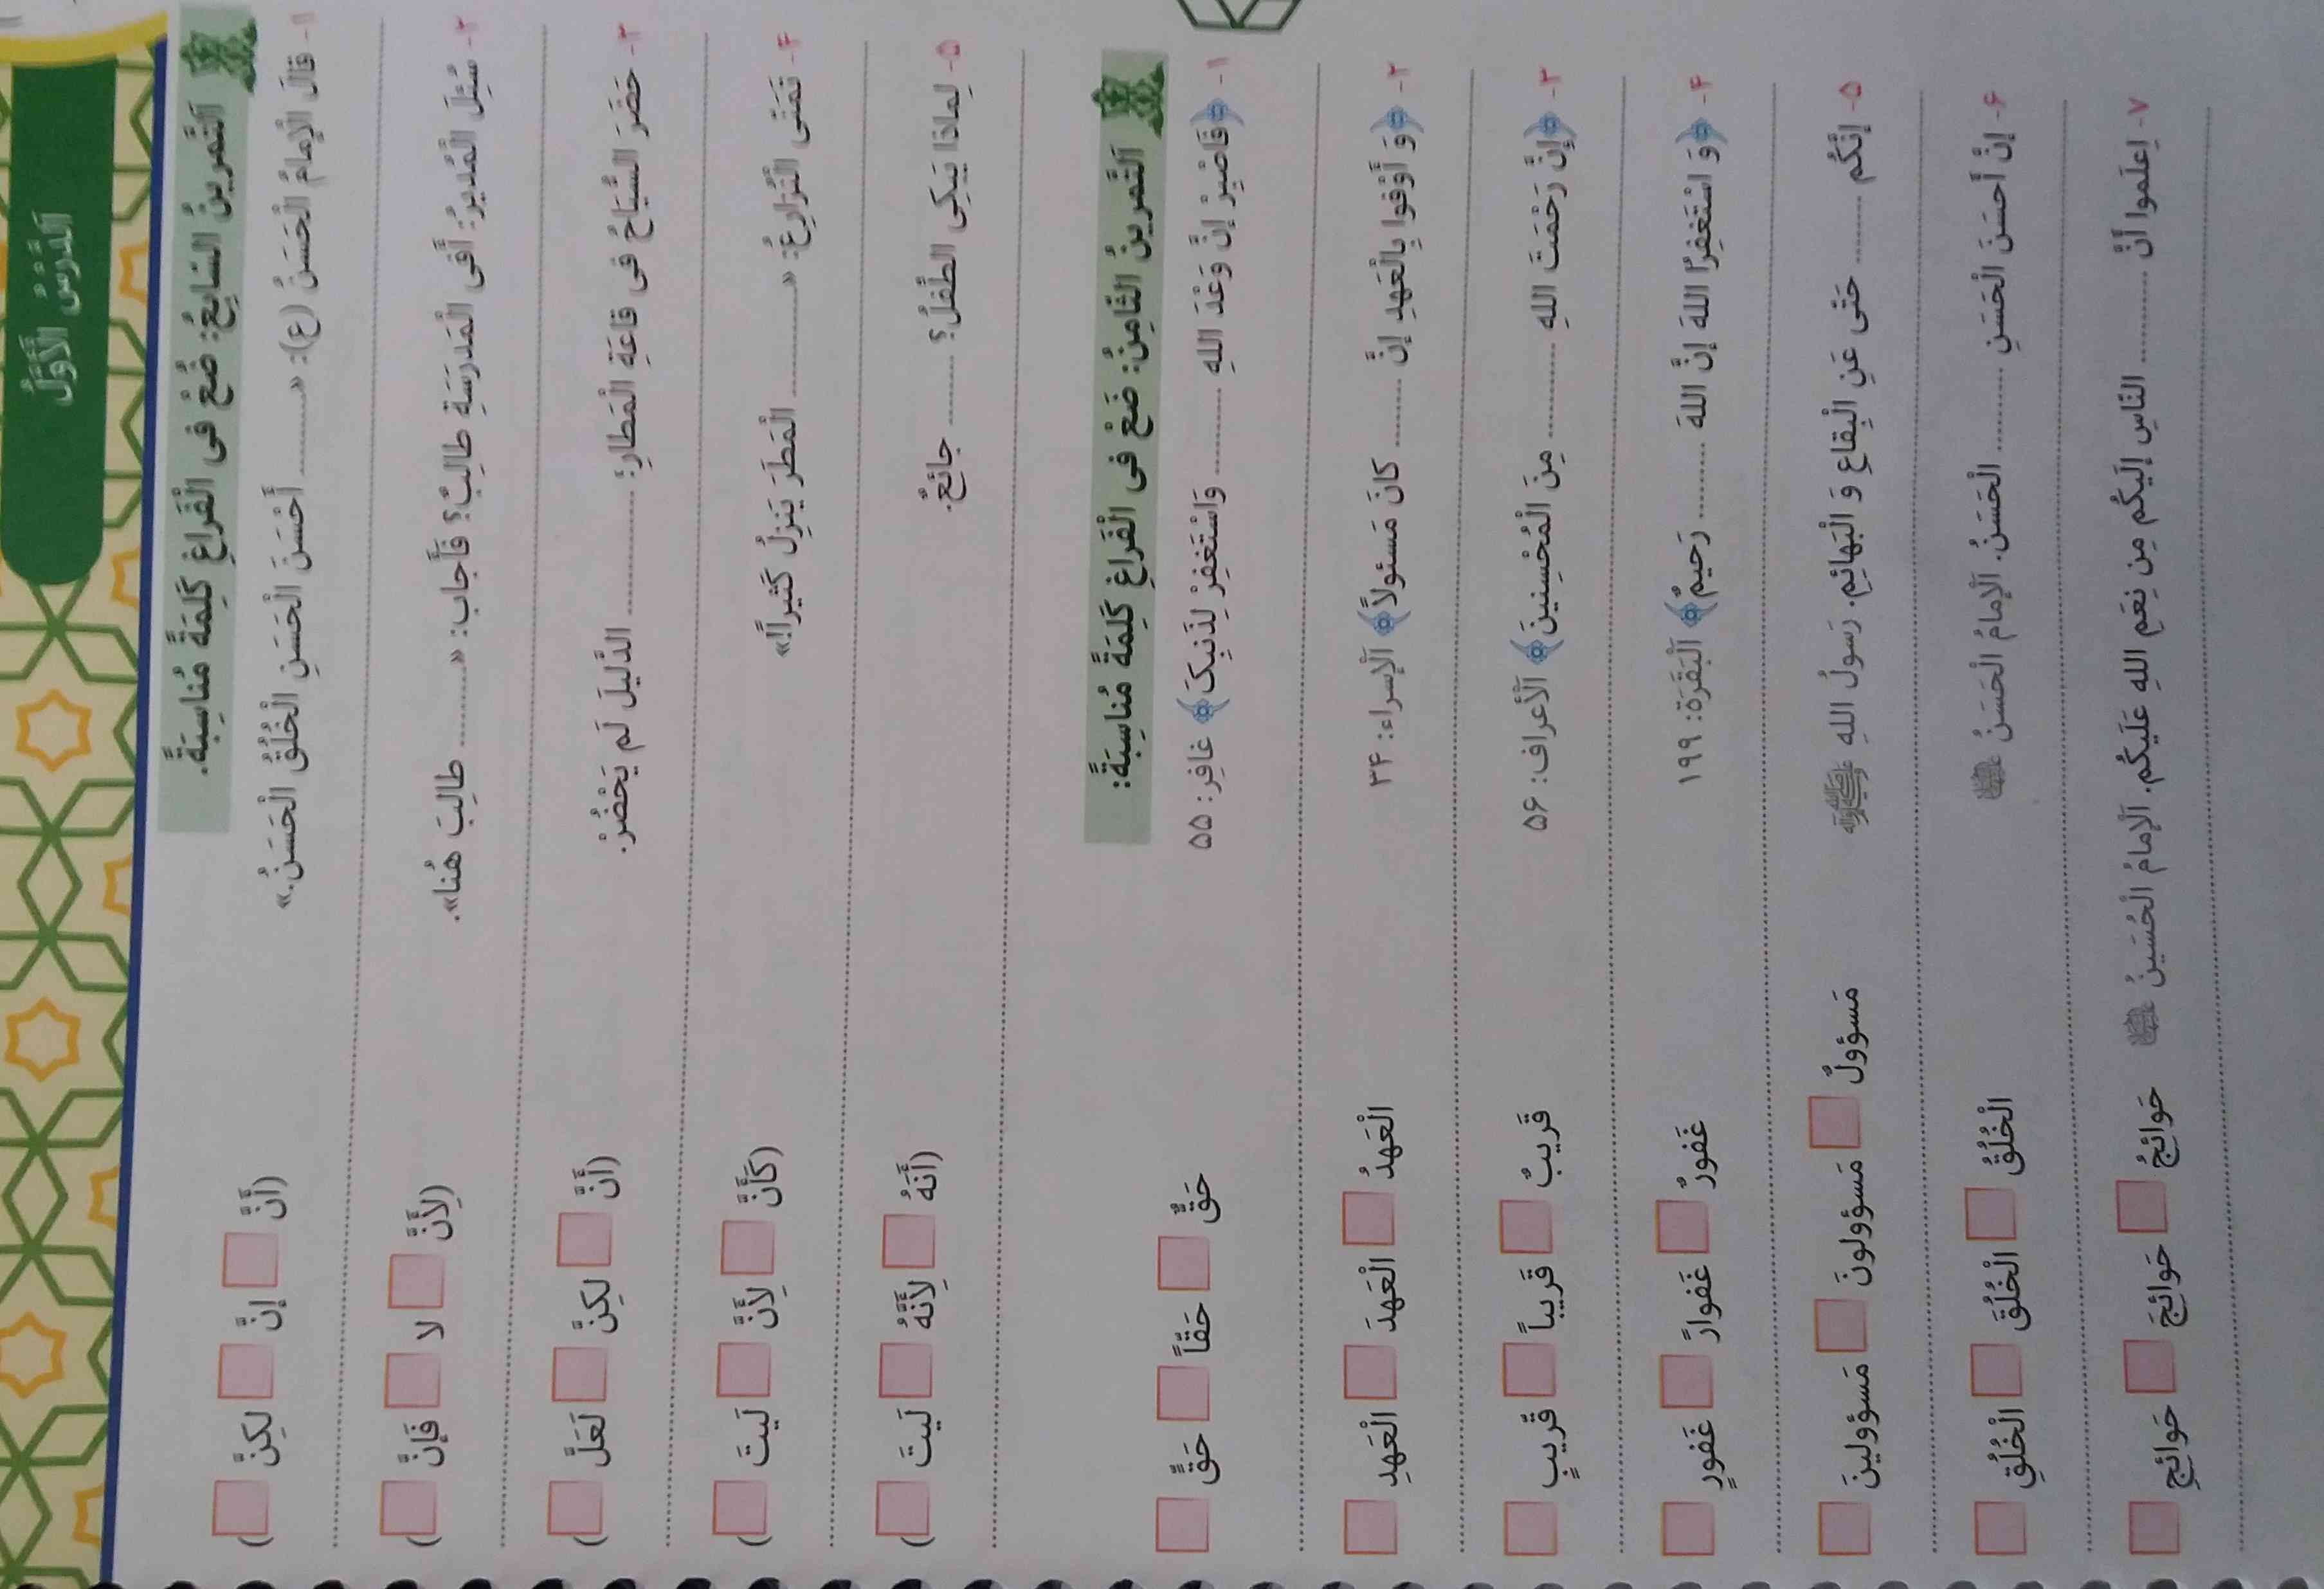 اَلدَّرْسُ الْأَوَّلُ
اَلتَّمرینُ السّابِعُ: ضَعْ فی الْفَراغِ کَلِمَةً مُناسِبَةً.
۱- قالَ الْإمامُ الْحَسَنُ (ع): «......... أَحْسَنَ الْحَسَنِ الْخُلُقُ الْحَسَنُ.»
(أَنَّ إنَّ لکِنَّ)
۲- سُئِلَ الْمُدیرُ: أَفی الْمَدرَسَةِ طالِبٌ؟ فَأَجابَ: «......... طالِبَ هُنا».
(لِأَنَّ لا فَإنَّ)
۳- حَضَرَ السُّیّاحُ فی قاعَةِ الْمَطارِ؛ ............ الدَّلیلَ لَم یَحْضُرْ.
(أَنَّ لکِنَّ لَعَلَّ)
۴- تَمَنّی الْمُزارِعُ: «............ الْمَطَرَ یَنزِلُ کَثیراً!»
(کَأَنَّ لِأَنَّ لَیتَ)
۵- لِماذا یَبکِی الطِّفلُ؟ ......... جائِعٌ.
(أَنَّهُ لِأَنَّهُ لَیتَ)
اَلتَّمرینُ الثّامِنُ: ضَعْ فی الْفَراغِ کَلِمَةً مُناسِبَةً:
۱- ﴿فَاصْبِرْ إنَّ وَعْدَ اللهِ ......... وَاسْتَغفِرْ لِذَنبِکَ﴾ غافِر: ۵۵
حَقٌّ حَقّاً حَقٍّ
۲- ﴿وَ أَوْفوا بِالْعَهدِ إنَّ ......... کانَ مَسئولاً﴾ اَلْإسراء: ۳۴
الْعَهدُ الْعَهدَ الْعَهدِ
۳- ﴿إنَّ رَحْمَتَ اللهِ ............ مِنَ الْمُحْسِنینَ﴾ اَلْأعراف: ۵۶
قَریبٌ قَریباً قَریبٍ
۴- ﴿وَ اسْتَغفِرُا اللهَ إنَّ اللهَ ......... رَحیمٌ﴾ اَلْبَقَرَة: ۱۹۹
غَفورٌ غَفوارً غَفورٍ
۵- إنَّکُم ......... حَتّی عَنِ الْبِقاعِ وَ الْبَهائِمِ. رَسولُ اللهِ ﷺ
مَسؤولٌ مَسؤولونَ مَسؤولینَ
۶- إنَّ أَحسَنَ الْحَسَنِ ......... الْحَسَنُ. اَلْإمامُ الْحَسَنُ
الْخُلُقُ الْخُلُقَ الْخُلُقِ
۷- اِعلَموا أَنَّ ............ النّاسِ إلَیکُم مِن نِعَمِ اللهِ عَلَیکُم. اَلْإمامُ الْحُسَینُ
حَوائِجُ حَوائِجَ حَوائِجِ